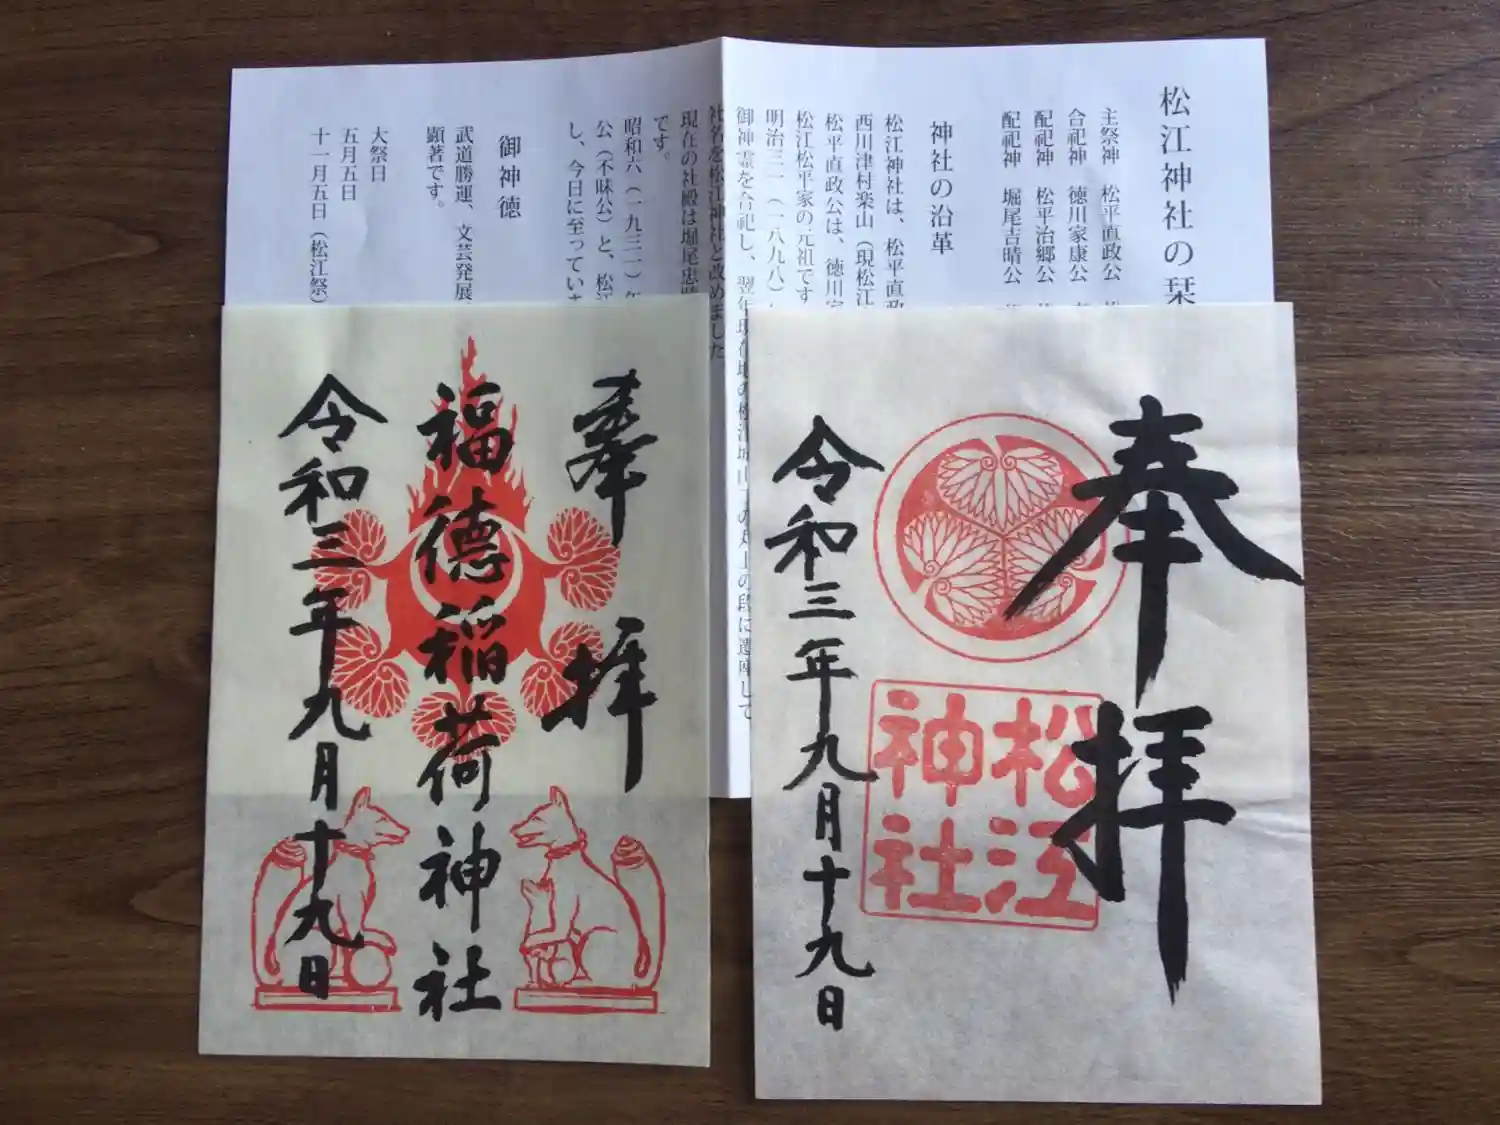 松江神社の栞
主祭神　松平直政公
合祀神　徳川家康公
配祀神　松平治郷公
配祀神　堀尾吉晴公
神社の沿革
松江神社は、松平直政
西川津村楽山（現松江
松平直政公は、徳川家
松江松平家の元祖です
明治三一（一八九八）
御神霊を合祀し、翌年現在地の松江城山二の丸上の段に遷座して
社名を松江神社と改めました
現在の社殿は堀尾忠晴
です。
昭和六（一九三一）年
公（不昧公）と、松江
し、今日に至っていま
御神徳
武道勝運、文芸発展
顕著です。
大祭日
五月五日
十一月五日（松江祭）
奉拝
松江
神社
令和三年九月十九日
奉拝
福徳稲荷神社
令和三年九月十九日